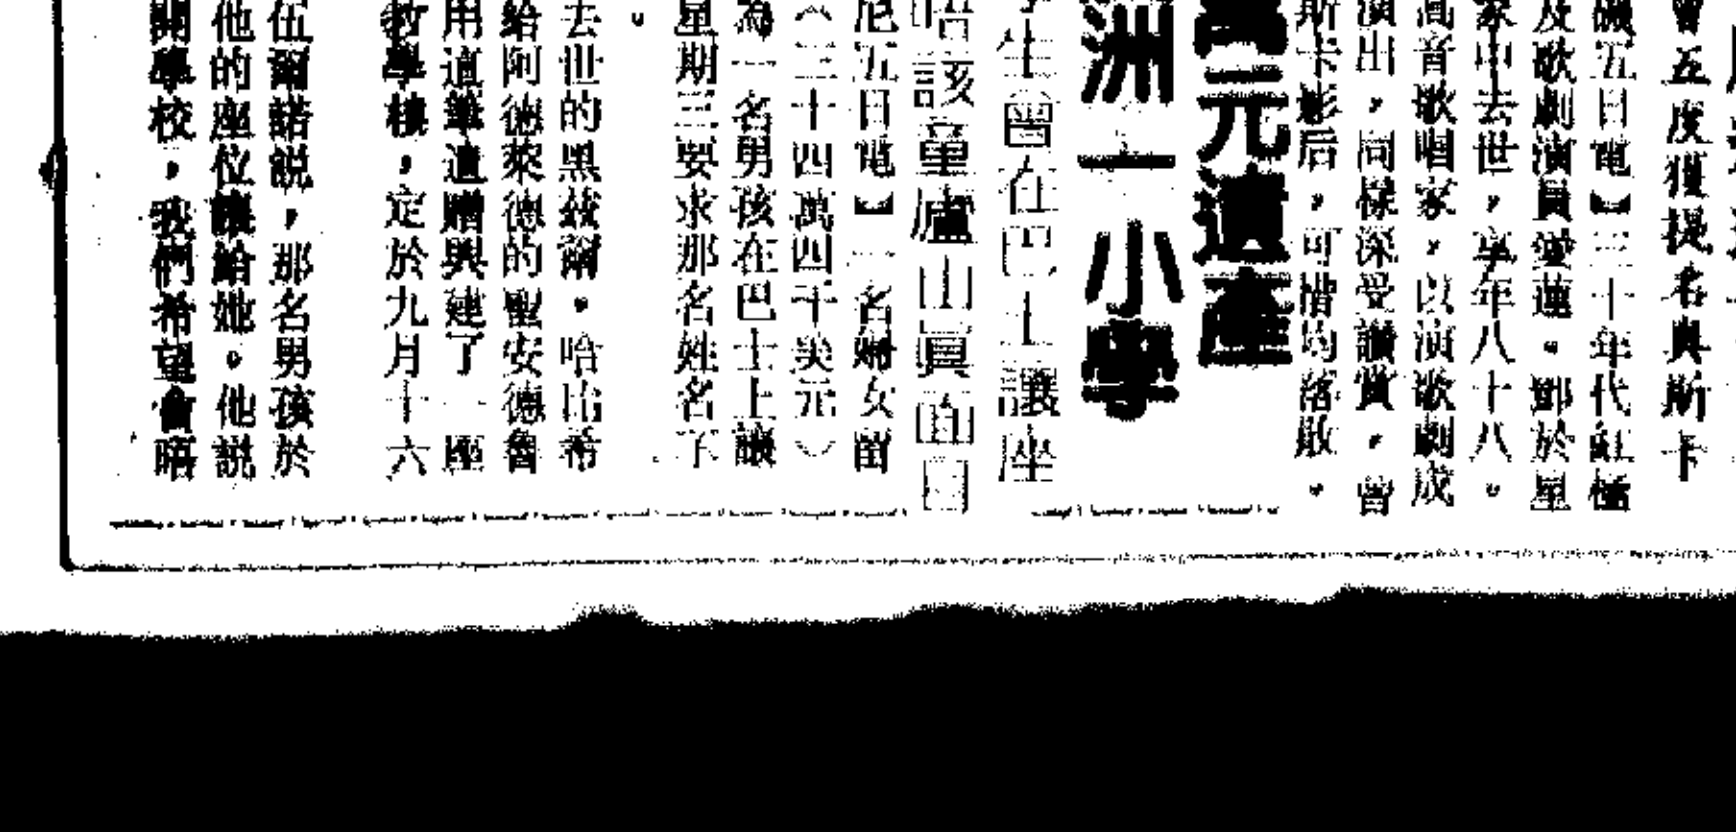 會五度獲提名奧斯卡
磯五日電】三十年代紅極
及歌劇演員愛蓮。鄧於星
家中去世，享年八十八。
高音歌唱家，以演歌劇成
演出，同樣深受讚賞，曾
斯卡影后，可惜均落敗。
萬元遺產
洲一小學
學生曾在巴士讓座
唔該童廬山眞面目
尼五日電】一名婦女留
（三十四萬四千美元）
為一名男孩在巴士上讓
星期三要求那名姓名不
。
去世的黑茲爾。哈出希
給阿德萊德的聖安德魯
用這筆遺贈興建了一座
教學樓，定於九月十六
伍爾諾説，那名男孩於
他的座位讓給她。他説
開學校，我們希望會晤